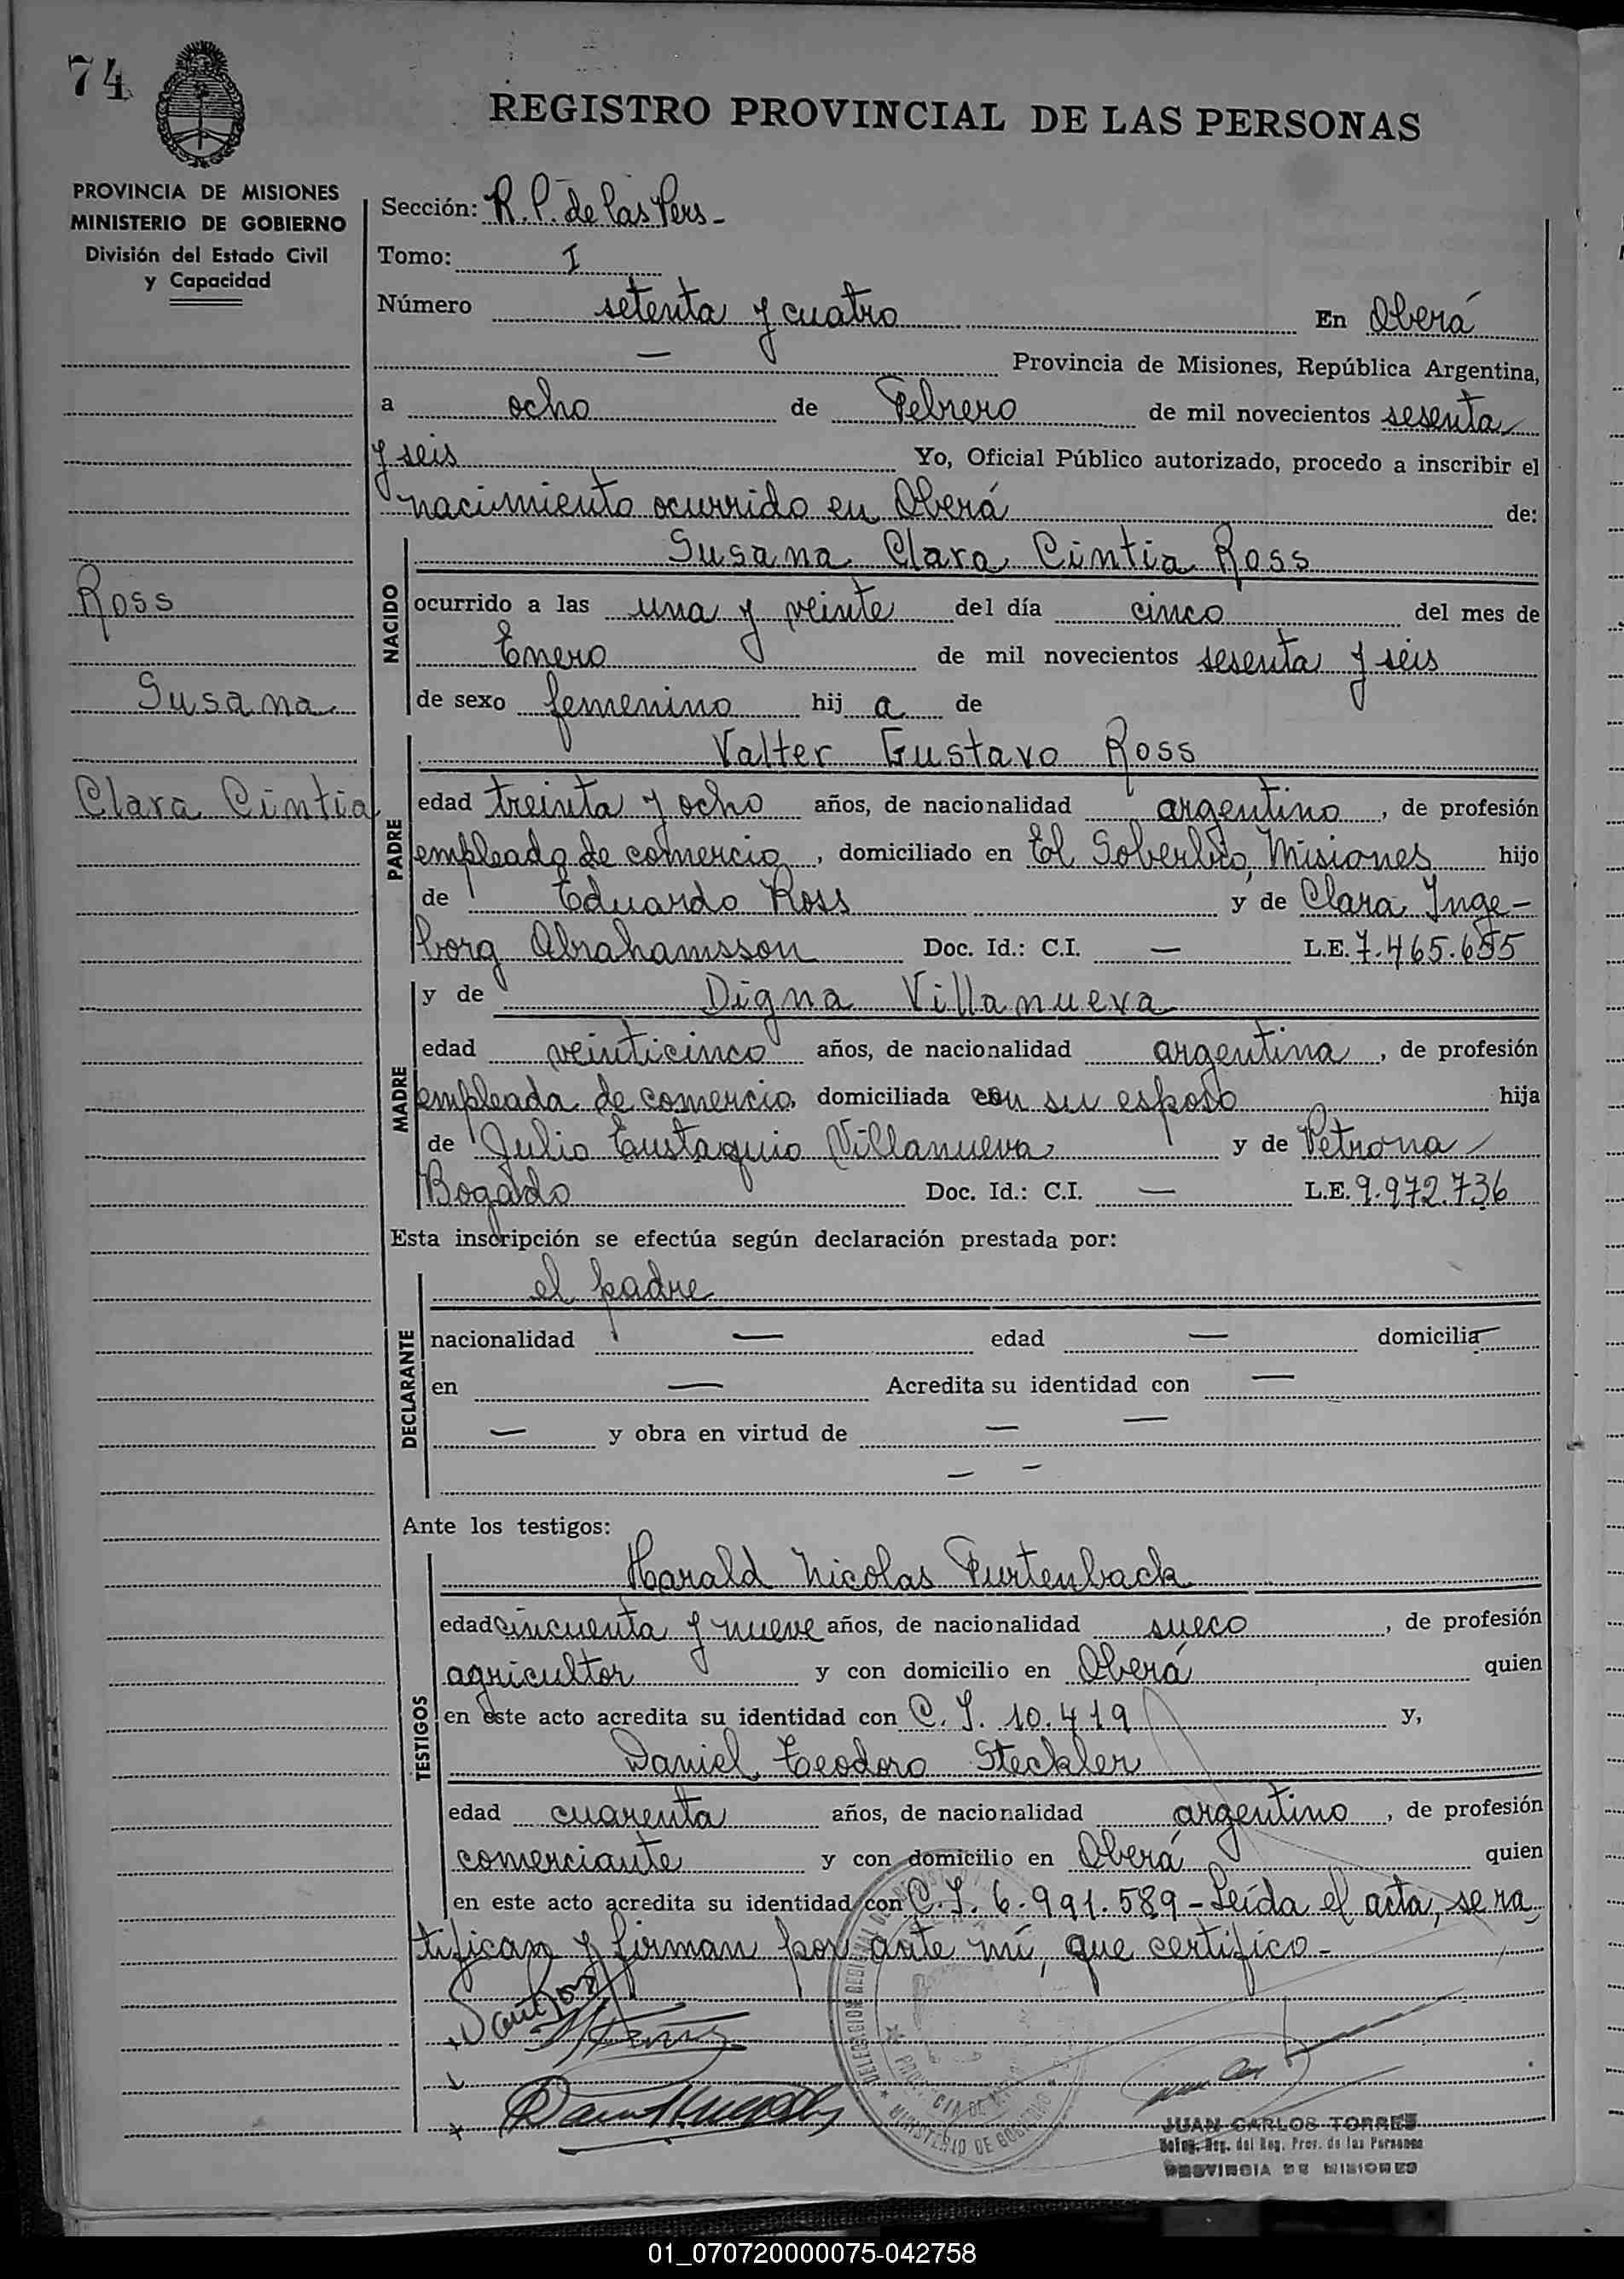 74
REGISTRO PROVINCIAL DE LAS PERSONAS
PROVINCIA DE MISIONES
MINISTERIO DE GOBIERNO
División del Estado Civil
y Capacidad
Sección: R. P. de las Pers -
Tomo: I
Número setenta y cuatro En Oberá
— Provincia de Misiones, República Argentina,
a ocho de Febrero de mil novecientos sesenta
y seis Yo, Oficial Público autorizado, procedo a inscribir el
nacimiento ocurrido en Oberá de:
Susana Clara Cintia Ross
Ross
Susana
Clara Cintia
NACIDO
ocurrido a las una y veinte del día cinco del mes de
Enero de mil novecientos sesenta y seis
de sexo femenino hij a de
PADRE
Valter Gustavo Ross
edad treinta y ocho años, de nacionalidad argentino, de profesión
empleado de comercio, domiciliado en El Soberbio, Misiones hijo
de Eduardo Ross y de Clara Inge-
borg Abrahamsson Doc. Id.: C.I. — L.E. 7.465.655
MADRE
y de Digna Villanueva
edad veinticinco años, de nacionalidad argentina, de profesión
empleada de comercio, domiciliada con su esposo hija
de Julio Eustaquio Villanueva y de Petrona
Bogado Doc. Id.: C.I. — L.E. 9.972.736
Esta inscripción se efectúa según declaración prestada por:
DECLARANTE
el padre
nacionalidad — edad — domicilia —
en — Acredita su identidad con —
— y obra en virtud de — —
— —
Ante los testigos:
TESTIGOS
Harald Nicolas Furtenback
edad cincuenta y nueve años, de nacionalidad sueco, de profesión
agricultor y con domicilio en Oberá quien
en este acto acredita su identidad con C. I. 10.419 y,
Daniel Teodoro Steckler
edad cuarenta años, de nacionalidad argentino, de profesión
comerciante y con domicilio en Oberá quien
en este acto acredita su identidad con C. I. 6.991.589 - Leída el acta, se ra
tifican y firman por ante mí, que certifico -
MINISTERIO DE GOBIERNO
JUAN CARLOS TORRES
Deleg. Reg. del Reg. Prov. de las Personas
PROVINCIA DE MISIONES
01_070720000075-042758